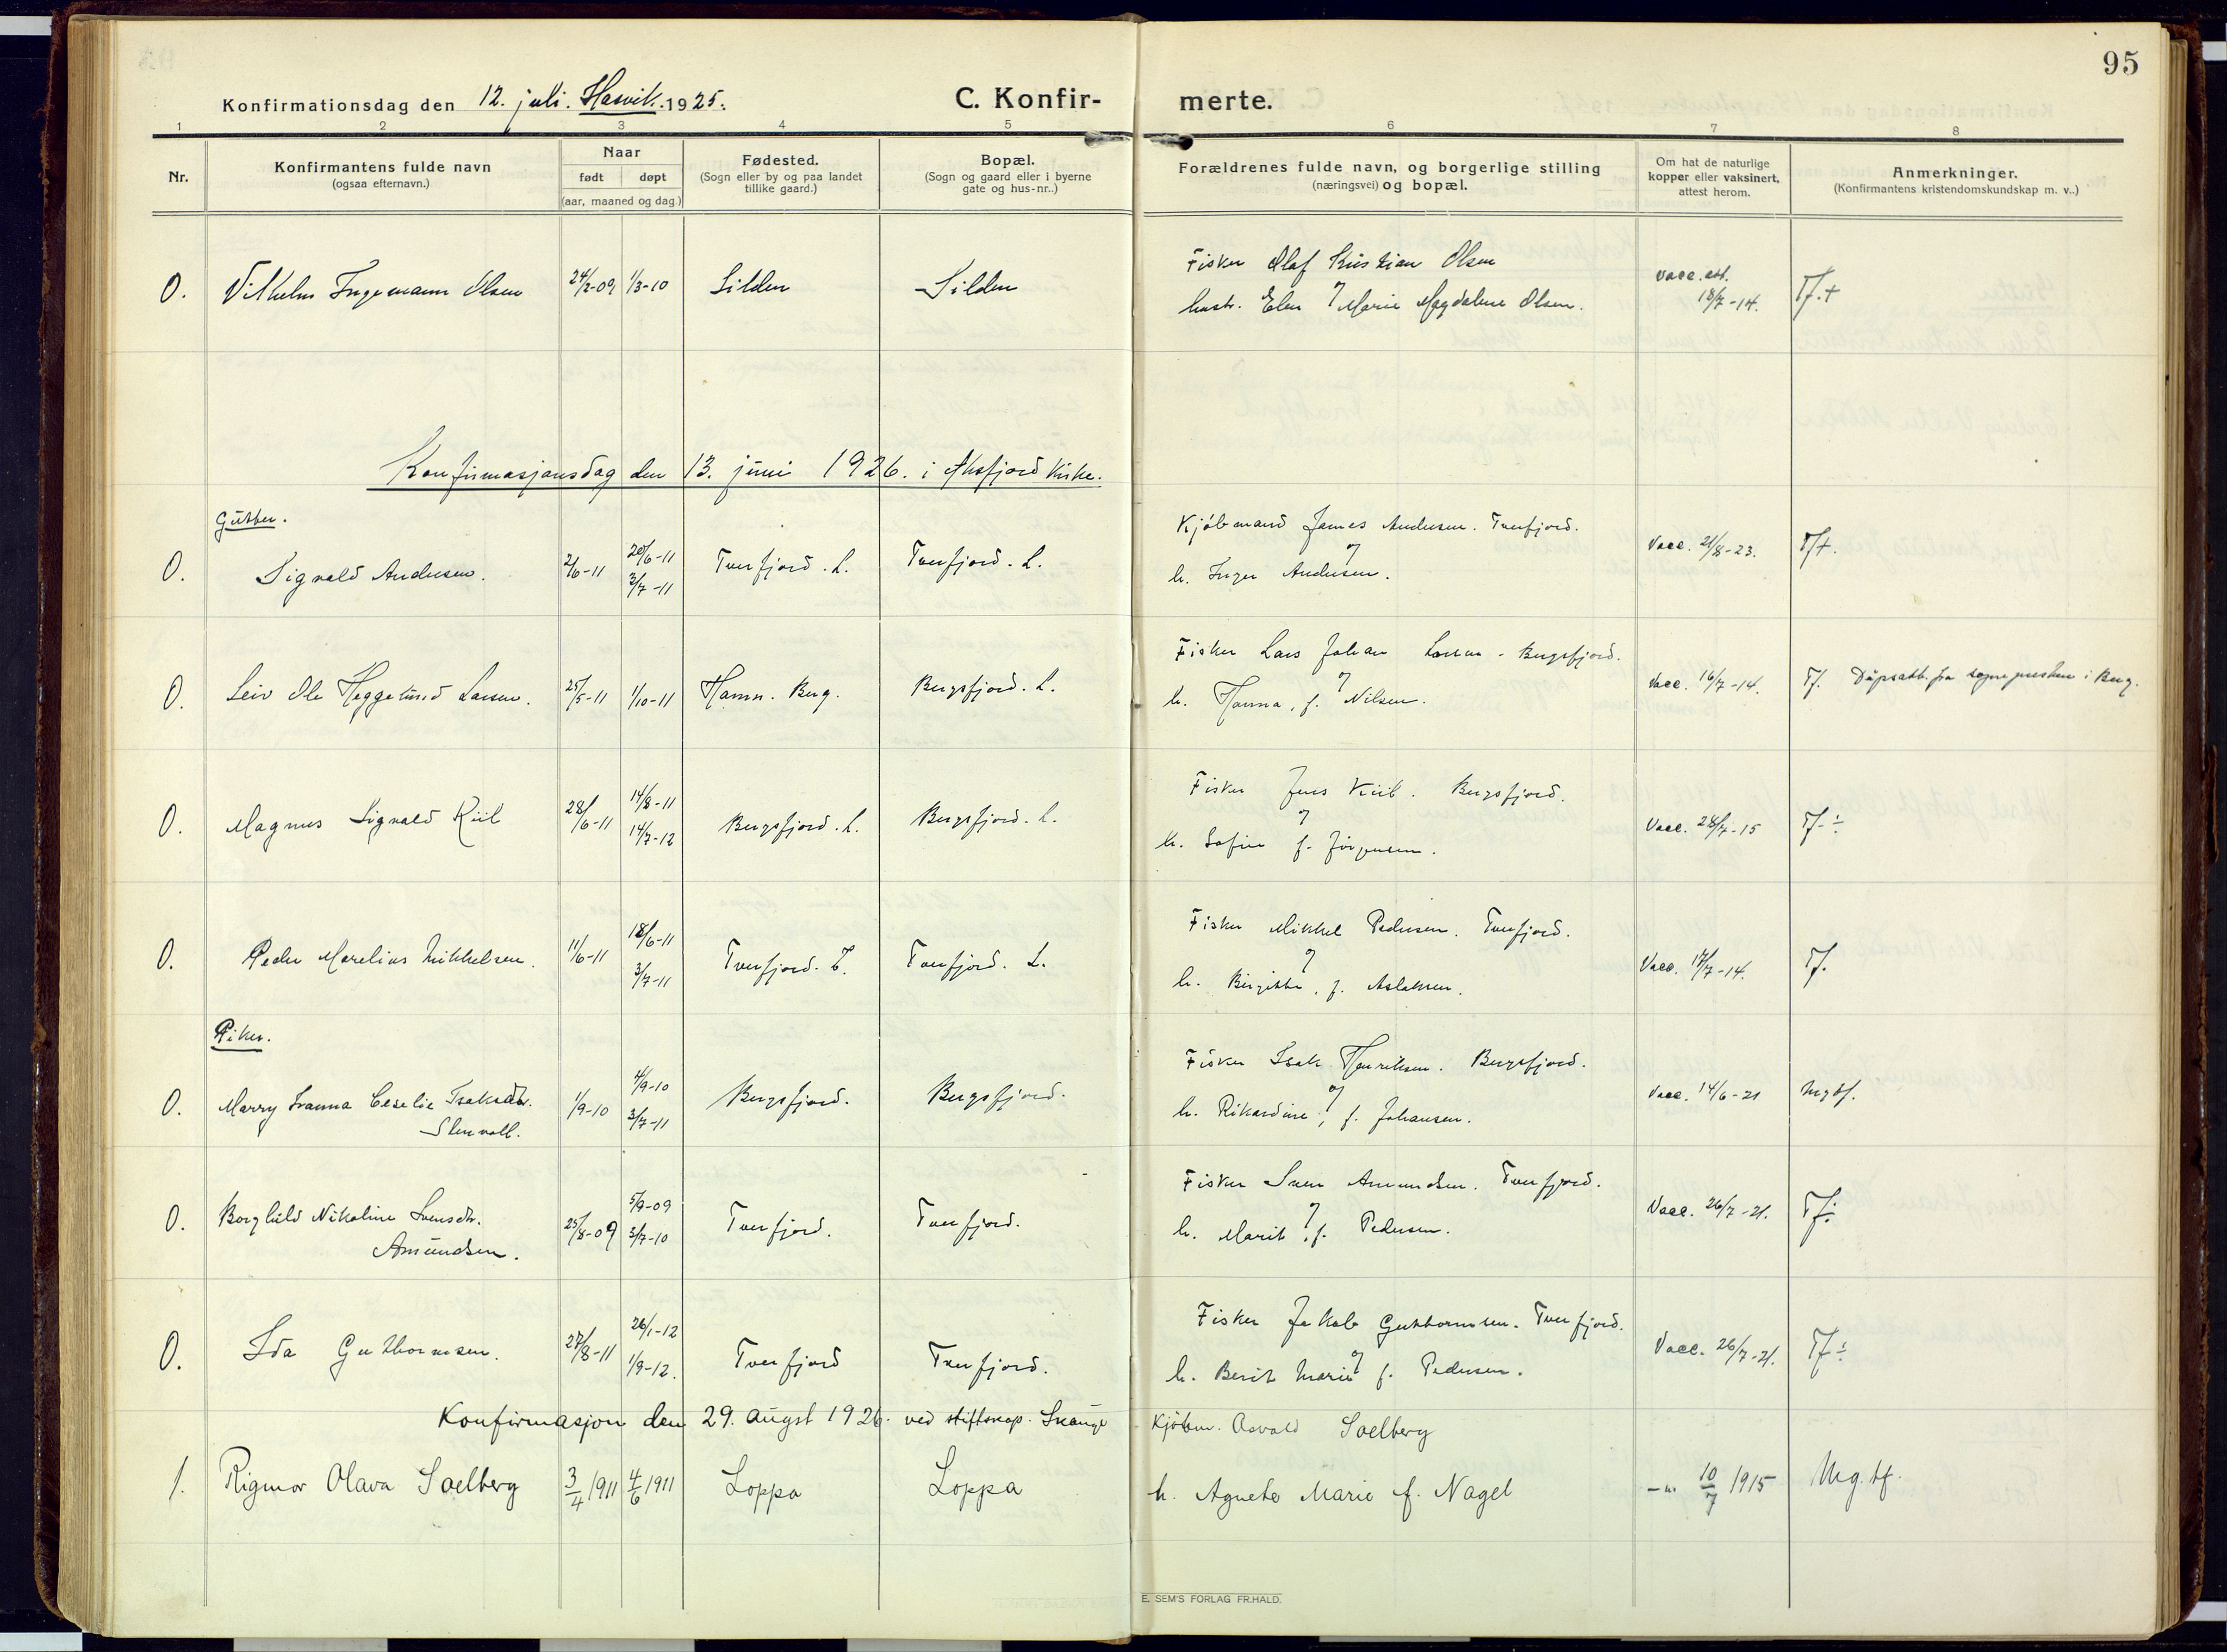 95
Konfirmationsdag den 12. juli. Hasvik. 1925.
C. Konfir-
merte.
1 2 3 4 5 6 7 8
Nr.
Konfirmantens fulde navn
(ogsaa efternavn.)
Naar
født døpt
(aar, maaned og dag.)
Fødested.
(Sogn eller by og paa landet
tillike gaard.)
Bopæl.
(Sogn og gaard eller i byerne
gate og hus-nr..)
Forældrenes fulde navn, og borgerlige stilling
(næringsvei) og bopæl.
Om hat de naturlige
kopper eller vaksinert,
attest herom.
Anmerkninger.
(Konfirmantens kristendomskundskap m. v..)
Fisker Olaf Kristian Olsen
O. Vilhelm Ingemann Olsen 1/3-10 Silden Silden
hustr. Elen og Marie Magdalene Olsen.
vacc. att.
18/7-14.
Tf.+
Konfirmasjonsdag den 13. juni 1926. i Øksfjord kirke.
Gutter.
Kjøbmand James Andersen. Tverfjord.
O. Sigvald Andersen. 2/6-11 20/6-11 Tverfjord. L. Tverfjord. L.
3/7-11
og
h. Inger Andersen.
Vacc. 21/8-23.
Tf+.
Fisker Lars Johan Larsen - Bergsfjord.
O. Leiv Ole Heggelund Larsen. 25/5-11 1/10-11 Hamn. Berg. Bergsfjord. L.
og
h. Hanna, f. Nilsen.
Vacc. 16/7-14.
Tf. Dåpsatt. fra sognepresten i Berg.
Fisker Jens Kiil. Bergsfjord.
O. Magnus Sigvald Kiil 28/6-11 14/8-11 Bergsfjord. L. Bergsfjord. L.
14/7-12
og
h. Sofie f. Jørgensen.
Vacc. 28/7-15
Tf-÷
Fisker Mikkel Pedersen. Tverfjord.
O. Peder Marelius Mikkelsen. 11/6-11 18/6-11 Tverfjord. L. Tverfjord. L.
3/7-11
og
h. Birgitte, f. Aslaksen.
Vacc. 17/7-14.
Tf.
Piker.
Fisker Isak Henriksen. Bergsfjord.
O. Marry Ivanna Ceselie Isaksdtr. 1/9-10 4/9-10 Bergsfjord. Bergsfjord.
Stenvoll. 3/7-11
og
h. Rikardine, f. Johansen.
Vacc. 14/6-21
Mgtf.
Fisker Sven Amundsen. Tverfjord.
O. Borghild Nikoline Svensdtr. 25/8-09 5/9-09 Tverfjord. Tverfjord.
Amundsen. 3/7-10
og
h. Marit, f. Pedersen.
Vacc. 26/7-21.
Tf÷
Fisker Jakob Guttormsen. Tverfjord.
O. Ida Guttormsen. 27/8-11 26/1-12 Tverfjord Tverfjord.
1/9-12.
og
h. Berit Marie f. Pedersen.
Vacc. 26/7-21.
Tf÷
Konfirmasjon den 29. augst 1926. ved stiftskap. Skauge
Kjøbm. Osvald Soelberg
1. Rigmor Olava Soelberg 3/4 1911 4/6 1911 Loppa Loppa
h. Agnete Marie f. Nagel
-"- 10/7 1915
Mg. tf.
E. SEM'S FORLAG FR.HALD.